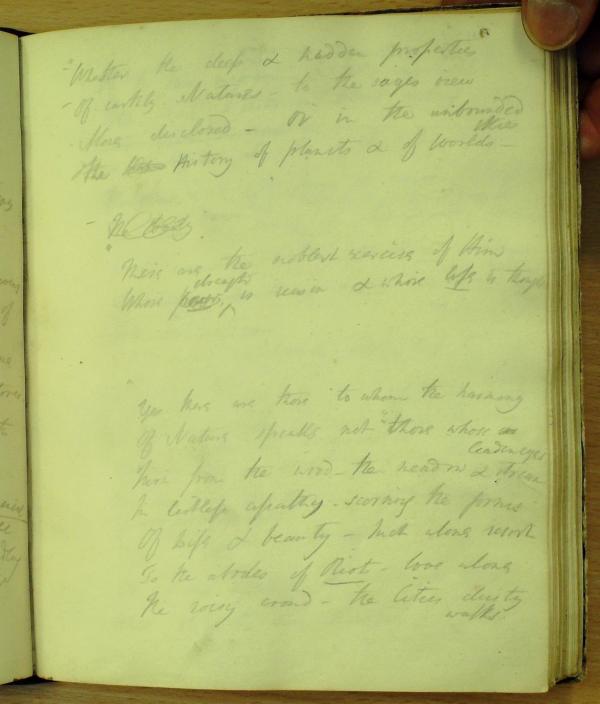 "Whether the deep & hidden properties
Of earthly Natures - to the sages view
Are disclosed - or in the unbounded
skies
The History of planets & of worlds -
- The
These are the noblest exercises of Him
strength
Whose power is reason & whose life is thought
Yes there are those to whom the harmony
Of Nature speaks not "those whose
leaden eyes
Turn from the wood - the meadow & stream
In listless apathy - scorning the forms
Of Life & beauty - such alone resort
To the abodes of Riot - love alone
The noisy crowd - the Cities dusty
walks.